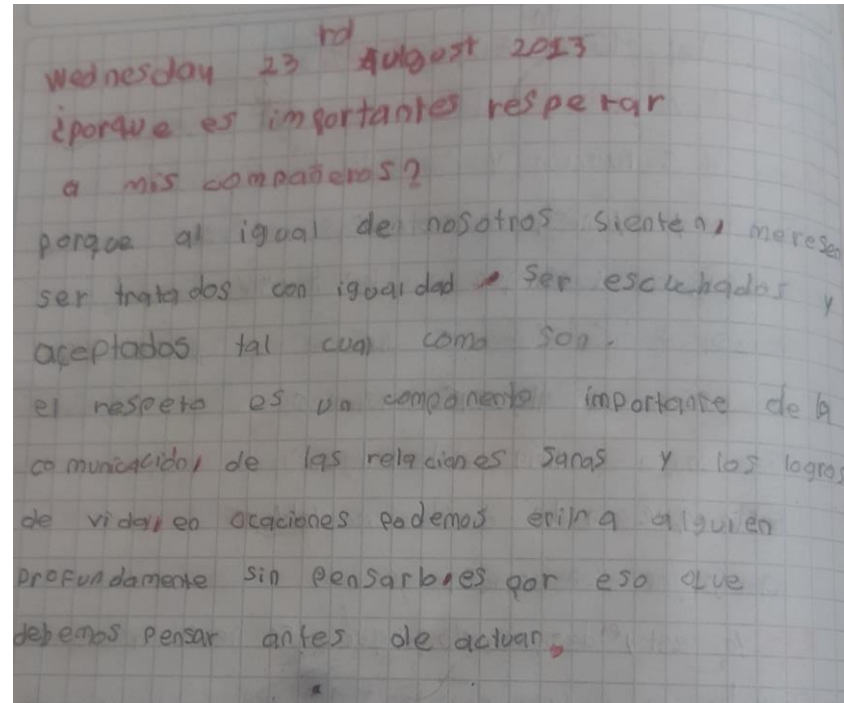 Wednesday 23rd August 2013
¿porque es importantes respetar
a mis compañeros?
porque al igual de nosotros sienten, meresen
ser tratados con igualdad ser escuchados y
aceptados tal cual como son.
el respeto es un componente importante de la
comunicación, de las relaciones sanas y los logros
de vida, en ocaciones podemos erir a alguien
profundamente sin pensarlo, es por eso que
debemos pensar antes de actuar.